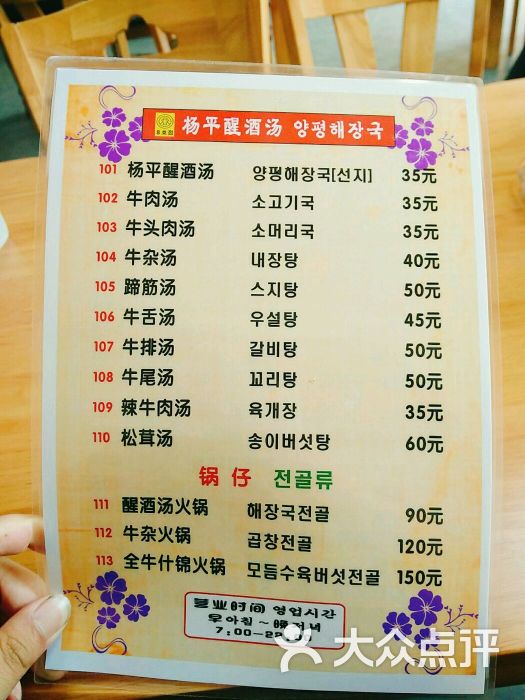 杨平醒酒汤 양평해장국
101 杨平醒酒汤 양평해장국[선지] 35元
102 牛肉汤 소고기국 35元
103 牛头肉汤 소머리국 35元
104 牛杂汤 내장탕 40元
105 蹄筋汤 스지탕 50元
106 牛舌汤 우설탕 45元
107 牛排汤 갈비탕 50元
108 牛尾汤 꼬리탕 50元
109 辣牛肉汤 육개장 35元
110 松茸汤 송이버섯탕 60元
锅仔 전골류
111 醒酒汤火锅 해장국전골 90元
112 牛杂火锅 곱창전골 120元
113 全牛什锦火锅 모듬수육버섯전골 150元
营业时间 영업시간
早아침~晚저녁
7:00~22
大众点评